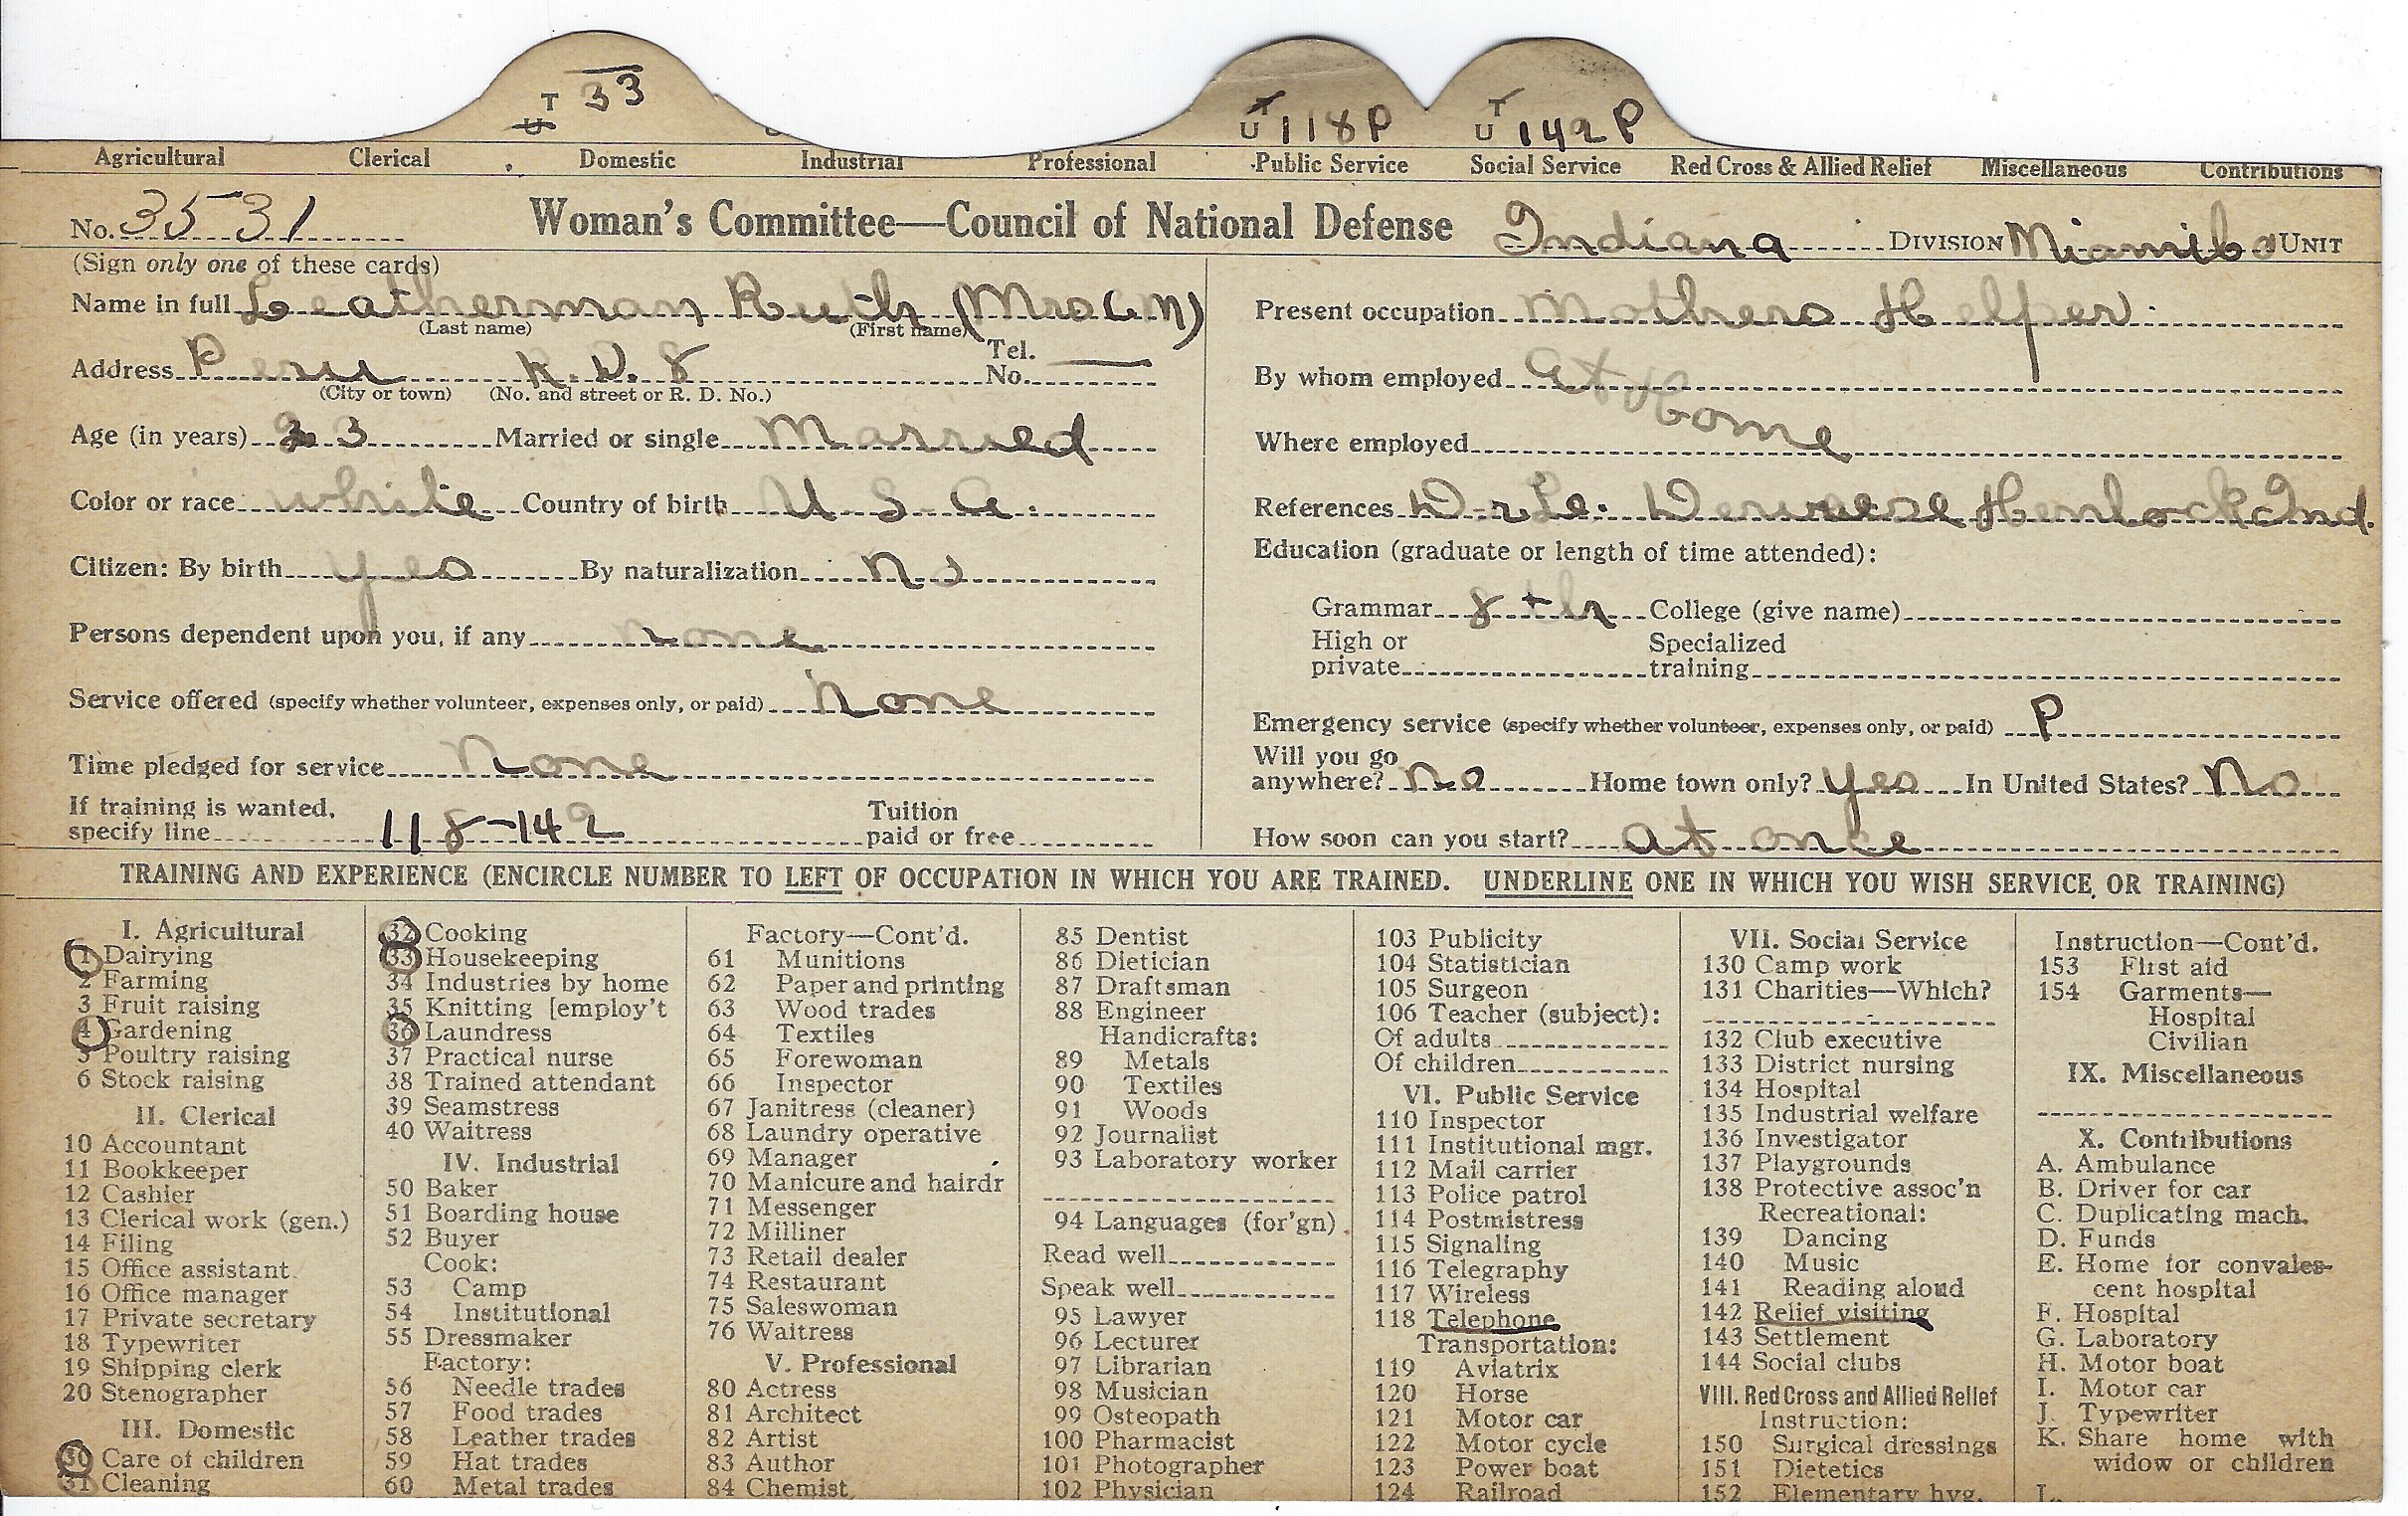 T 33
U
T U 118 P
T U 142 P
Agricultural Clerical Domestic Industrial Professional Public Service Social Service Red Cross & Allied Relief Miscellaneous Contributions
No. 3531 Woman's Committee—Council of National Defense Indiana DIVISION Miami Co UNIT
(Sign only one of these cards)
Name in full Leatherman Ruth (Mrs C M)
(Last name) (First name)
Address Peru R.D. 8 Tel. No. —
(City or town) (No. and street or R. D. No.)
Age (in years) 23 Married or single Married
Color or race white Country of birth U S A.
Citizen: By birth yes By naturalization No
Persons dependent upon you, if any none
Service offered (specify whether volunteer, expenses only, or paid) None
Time pledged for service None
If training is wanted, specify line 118-142 Tuition paid or free
Present occupation Mothers Helper
By whom employed At Home
Where employed
References Dr Le. Ind.
Education (graduate or length of time attended):
Grammar 8th College (give name)
High or private Specialized training
Emergency service (specify whether volunteer, expenses only, or paid) P
Will you go anywhere? no Home town only? yes In United States? No
How soon can you start? at once
TRAINING AND EXPERIENCE (ENCIRCLE NUMBER TO LEFT OF OCCUPATION IN WHICH YOU ARE TRAINED. UNDERLINE ONE IN WHICH YOU WISH SERVICE OR TRAINING)
I. Agricultural
1 Dairying
2 Farming
3 Fruit raising
4 Gardening
5 Poultry raising
6 Stock raising
II. Clerical
10 Accountant
11 Bookkeeper
12 Cashier
13 Clerical work (gen.)
14 Filing
15 Office assistant
16 Office manager
17 Private secretary
18 Typewriter
19 Shipping clerk
20 Stenographer
III. Domestic
30 Care of children
31 Cleaning
32 Cooking
33 Housekeeping
34 Industries by home
35 Knitting [employ't
36 Laundress
37 Practical nurse
38 Trained attendant
39 Seamstress
40 Waitress
IV. Industrial
50 Baker
51 Boarding house
52 Buyer
Cook:
53 Camp
54 Institutional
55 Dressmaker
Factory:
56 Needle trades
57 Food trades
58 Leather trades
59 Hat trades
60 Metal trades
Factory—Cont'd.
61 Munitions
62 Paper and printing
63 Wood trades
64 Textiles
65 Forewoman
66 Inspector
67 Janitress (cleaner)
68 Laundry operative
69 Manager
70 Manicure and hairdr
71 Messenger
72 Milliner
73 Retail dealer
74 Restaurant
75 Saleswoman
76 Waitress
V. Professional
80 Actress
81 Architect
82 Artist
83 Author
84 Chemist
85 Dentist
86 Dietician
87 Draftsman
88 Engineer
Handicrafts:
89 Metals
90 Textiles
91 Woods
92 Journalist
93 Laboratory worker
94 Languages (for'gn)
Read well
Speak well
95 Lawyer
96 Lecturer
97 Librarian
98 Musician
99 Osteopath
100 Pharmacist
101 Photographer
102 Physician
103 Publicity
104 Statistician
105 Surgeon
106 Teacher (subject):
Of adults
Of children
VI. Public Service
110 Inspector
111 Institutional mgr.
112 Mail carrier
113 Police patrol
114 Postmistress
115 Signaling
116 Telegraphy
117 Wireless
118 Telephone
Transportation:
119 Aviatrix
120 Horse
121 Motor car
122 Motor cycle
123 Power boat
124 Railroad
VII. Social Service
130 Camp work
131 Charities—Which?
132 Club executive
133 District nursing
134 Hospital
135 Industrial welfare
136 Investigator
137 Playgrounds
138 Protective assoc'n
Recreational:
139 Dancing
140 Music
141 Reading aloud
142 Relief visiting
143 Settlement
144 Social clubs
VIII. Red Cross and Allied Relief
Instruction:
150 Surgical dressings
151 Dietetics
152 Elementary hyg.
Instruction—Cont'd.
153 First aid
154 Garments—
Hospital
Civilian
IX. Miscellaneous
X. Contributions
A. Ambulance
B. Driver for car
C. Duplicating mach.
D. Funds
E. Home for convales-
cent hospital
F. Hospital
G. Laboratory
H. Motor boat
I. Motor car
J. Typewriter
K. Share home with
widow or children
L.